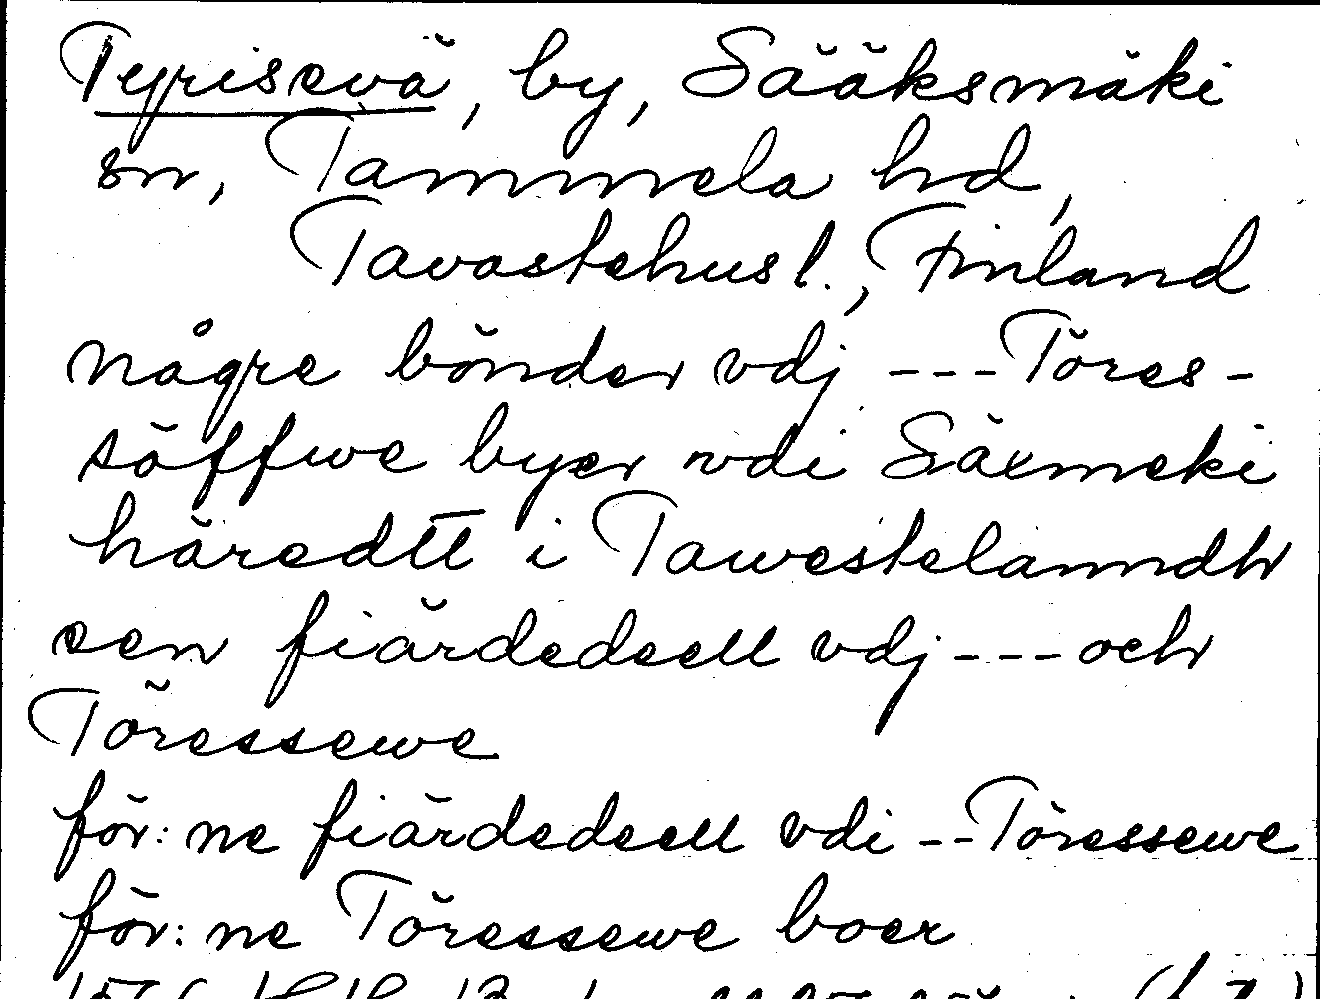 Tyrisevä, by, Sääksmäki
sn, Tammela hd,
Tavastehus l., Finland
någre bönder vdj --- Töres-
söffwe byer vdi Säxmeki
häredtt i Tawestelanndh
een fiärdedeell vdj --- och
Töressewe
för:ne fiärdedeell vdi -- Töressewe
för:ne Töressewe boer